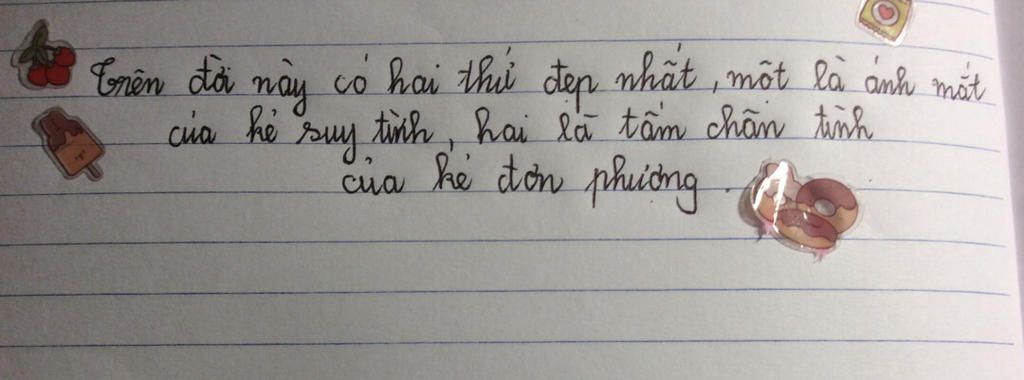 Trên đời này có hai thứ đẹp nhất, một là ánh mắt
của kẻ suy tình, hai là tấm chân tình
của kẻ đơn phương.